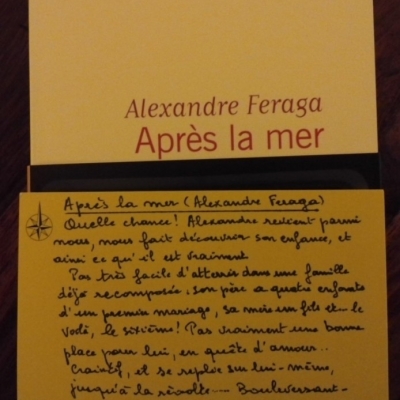 Alexandre Feraga
Après la mer
Après la mer (Alexandre Feraga)
Quelle chance! Alexandre revient parmi
nous, nous fait découvrir son enfance, et
ainsi ce qu'il est vraiment.
Pas très facile d'atterrir dans une famille
déjà recomposée, son père a quatre enfants
d'un premier mariage, sa mère un fils et... le
voilà, le sixième! Pas vraiment une bonne
place pour lui, en quête d'amour..
Craintif, et se replie sur lui-même,
jusqu'à la révolte... Bouleversant-